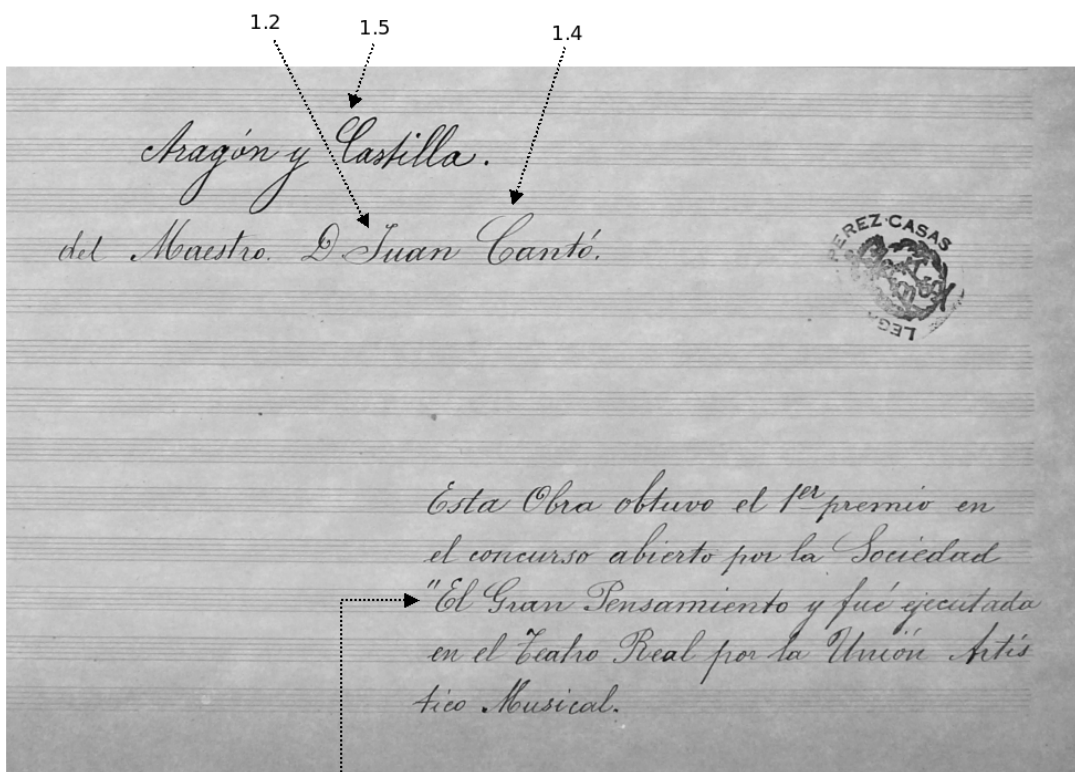 1.2 1.5 1.4
Aragón y Castilla.
del Maestro. D Juan Cantó.
PEREZ·CASAS
LEGA
Esta Obra obtuvo el 1er premio en
el concurso abierto por la Sociedad
"El Gran Pensamiento y fué ejecutada
en el Teatro Real por la Unión Artís
tico Musical.